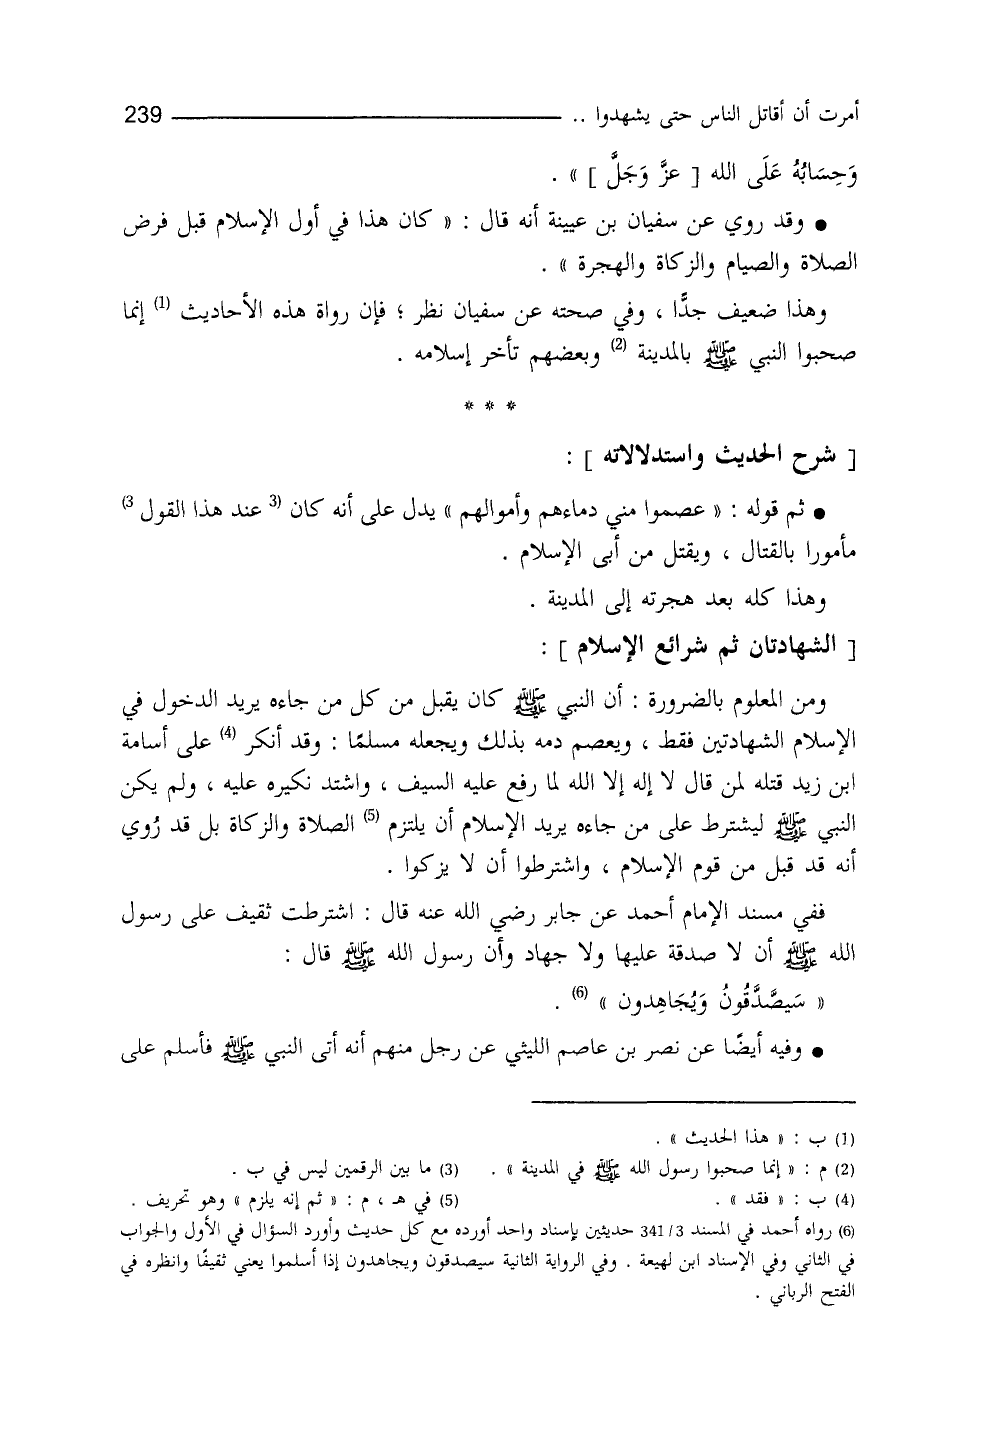 أمرت أن أقاتل الناس حتى يشهدوا .. 239
وَحِسَابُهُ عَلَى الله [ عزَّ وَجَلَّ ] » .
● وقد روي عن سفيان بن عيينة أنه قال : « كان هذا في أول الإسلام قبل فرض
الصلاة والصيام والزكاة والهجرة » .
وهذا ضعيف جدًّا ، وفي صحته عن سفيان نظر ؛ فإن رواة هذه الأحاديث (1) إنما
صحبوا النبي ﷺ بالمدينة (2) وبعضهم تأخر إسلامه .
* * *
[ شرح الحديث واستدلالاته ] :
● ثم قوله : « عصموا مني دماءهم وأموالهم » يدل على أنه كان (3 عند هذا القول 3)
مأمورا بالقتال ، ويقتل من أبى الإسلام .
وهذا كله بعد هجرته إلى المدينة .
[ الشهادتان ثم شرائع الإسلام ] :
ومن المعلوم بالضرورة : أن النبي ﷺ كان يقبل من كل من جاءه يريد الدخول في
الإسلام الشهادتين فقط ، ويعصم دمه بذلك ويجعله مسلمًا : وقد أنكر (4) على أسامة
ابن زيد قتله لمن قال لا إله إلا الله لما رفع عليه السيف ، واشتد نكيره عليه ، ولم يكن
النبي ﷺ ليشترط على من جاءه يريد الإسلام أن يلتزم (5) الصلاة والزكاة بل قد رُوي
أنه قد قبل من قوم الإسلام ، واشترطوا أن لا يزكوا .
ففي مسند الإمام أحمد عن جابر رضي الله عنه قال : اشترطت ثقيف على رسول
الله ﷺ أن لا صدقة عليها ولا جهاد وأن رسول الله ﷺ قال :
« سَيصَّدَّقُونُ وَيُجَاهِدون » (6) .
● وفيه أيضًا عن نصر بن عاصم الليثي عن رجل منهم أنه أتى النبي ﷺ فأسلم على
(1) ب : « هذا الحديث » .
(2) م : « إنما صحبوا رسول الله ﷺ في المدينة » . (3) ما بين الرقمين ليس في ب .
(4) ب : « فقد » . (5) في هـ ، م : « ثم إنه يلزم » وهو تحريف .
(6) رواه أحمد في المسند 3/ 341 حديثين بإسناد واحد أورده مع كل حديث وأورد السؤال في الأول والجواب
في الثاني وفي الإسناد ابن لهيعة . وفي الرواية الثانية سيصدقون ويجاهدون إذا أسلموا يعني ثقيفًا وانظره في
الفتح الرباني .